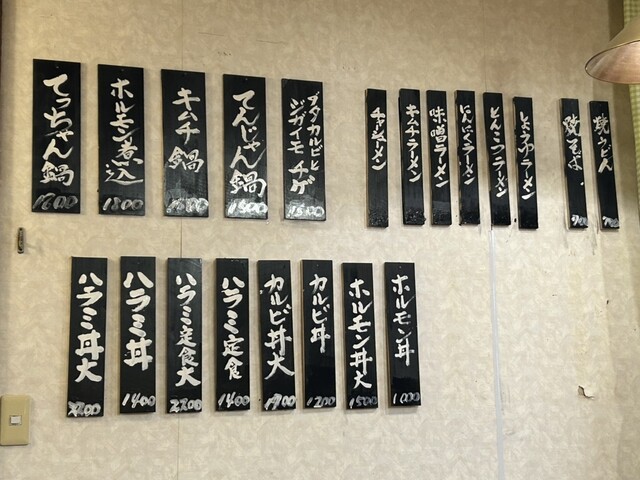 てっちゃん鍋
ホルモン煮込
1800
キムチ鍋
てんじゃん鍋
1500
ブタカルビと
ジガイモチゲ
1500
チャシューメン
キムチラーメン
味噌ラーメン
にんにくラーメン
とんこつラーメン
しょうゆラーメン
焼そば
焼うどん
ハラミ丼大
ハラミ丼
1400
ハラミ定食大
2200
ハラミ定食
1400
カルビ丼大
1900
カルビ丼
1200
ホルモン丼大
1500
ホルモン丼
1000